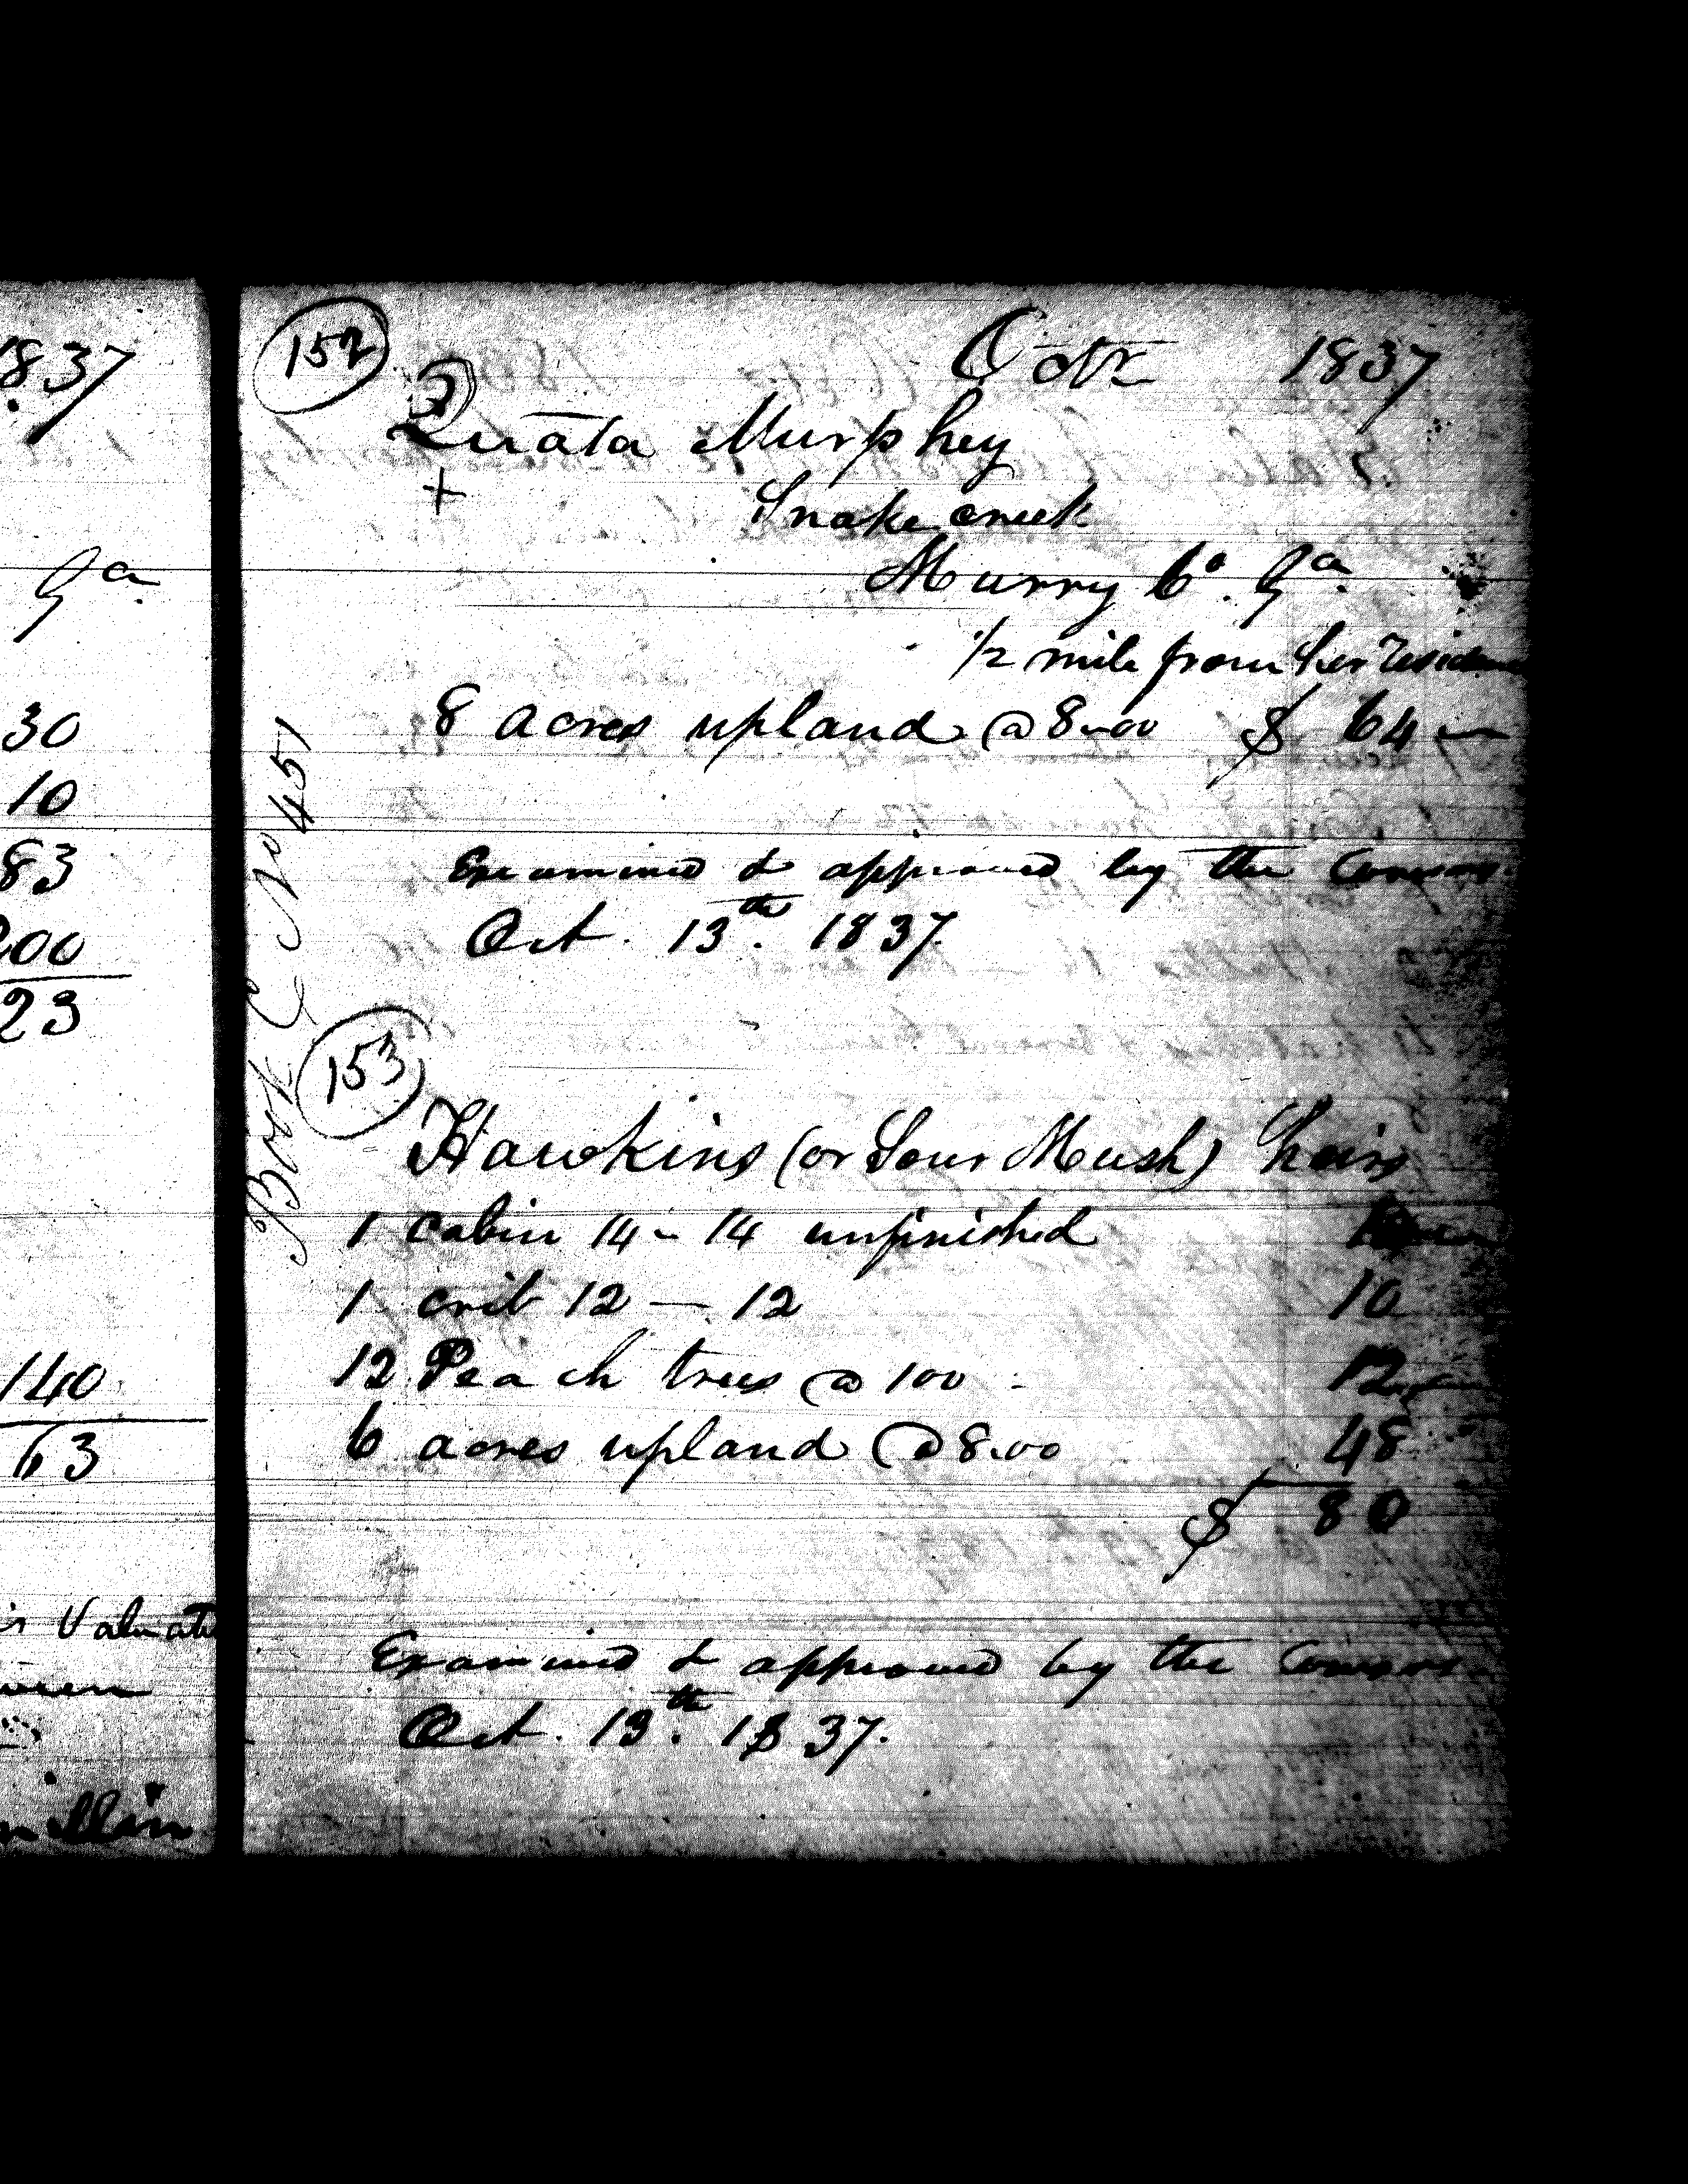 1837
Ga
30
10
83
200
23
140
63
Valuati
152
Octr 1837
Quata Murphey
+
Snake creek
Murry Co. Ga.
1/2 mile from her residence
8 acres upland @ 8.00 $ 64
Examined & approved by the Commrs.
Oct. 13th. 1837.
Book C No 451
153
Hawkins (or Sour Mush) heirs
1 cabin 14 - 14 unfinished
1 crib 12 — 12 10
12 Peach trees @ 100 12
6 acres upland @ 8.00 48
$ 80
Examined & approved by the Commrs
Oct. 13th. 1837.